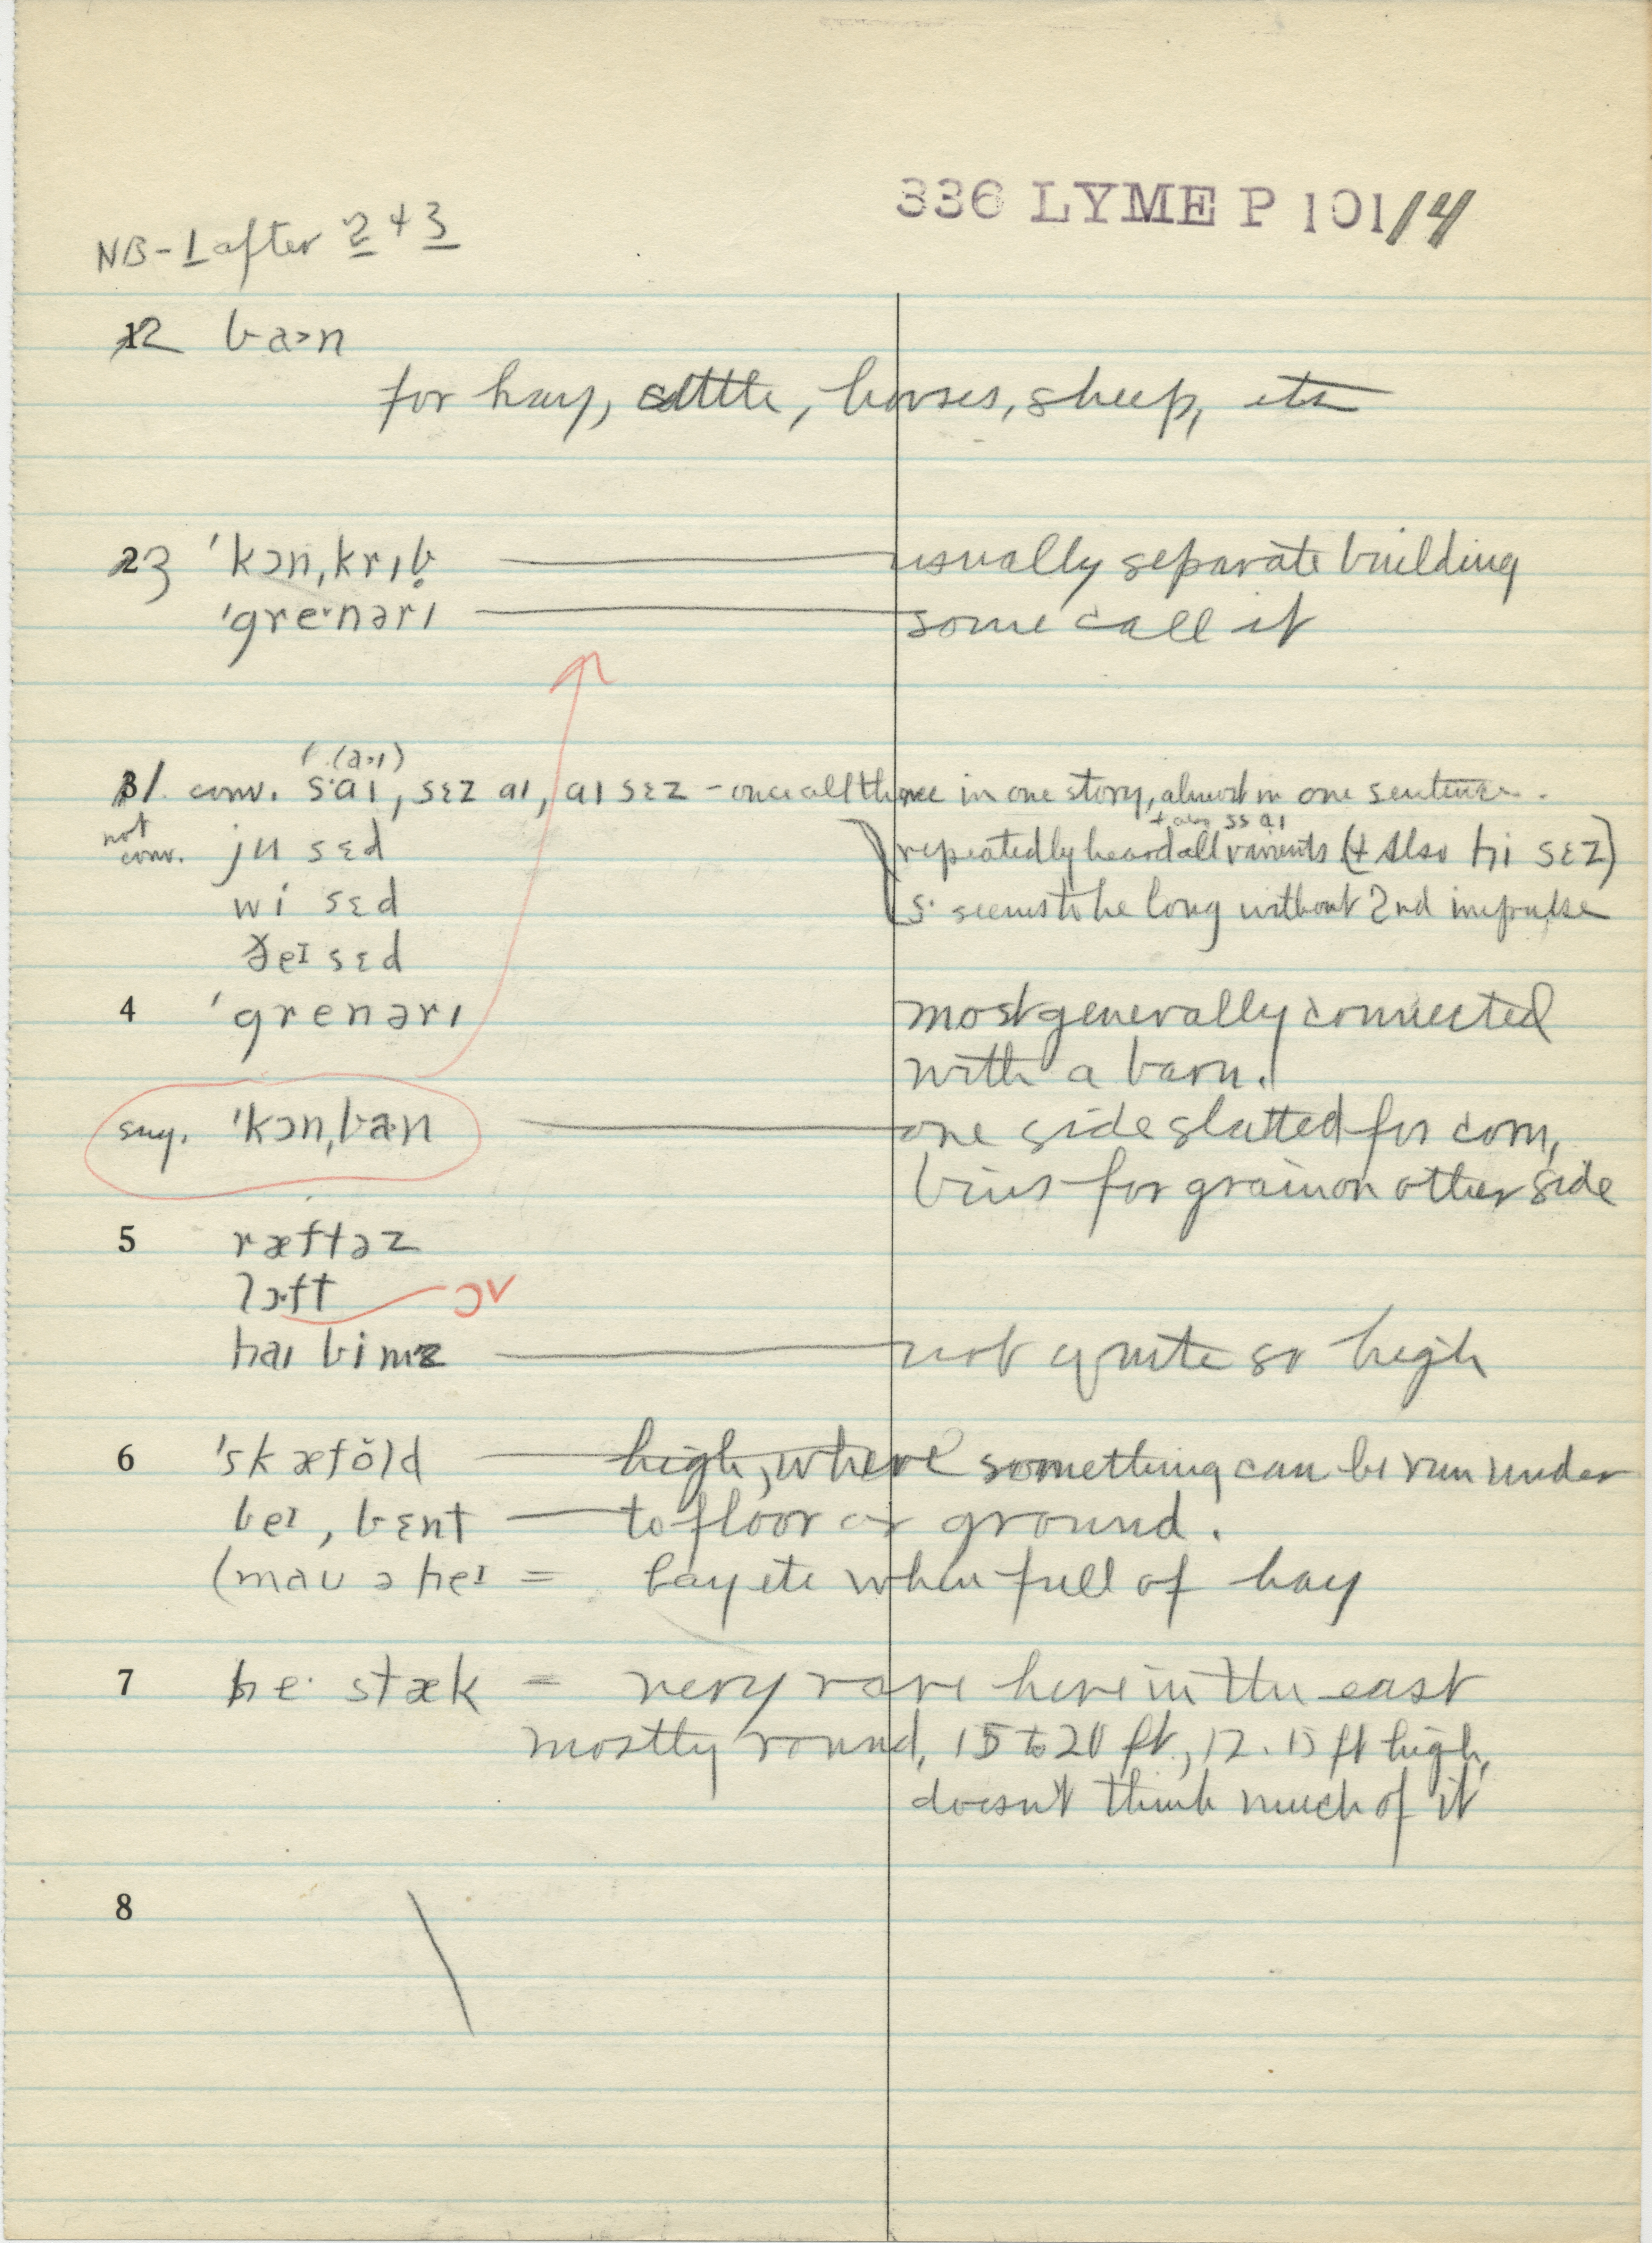 336 LYME P 101/14
NB - 1 after 2 + 3
2 ba>n
for hay, cattle, horses, sheep, etc
3 ˈkɔn,krɪb̥ usually separate building
ˈgre·nərɪ some call it
(a·ɪ)
1 conv. s·aɪ, sɛz aɪ, aɪ sɛz - once all three in one story, almost in one sentence.
+ also ss aɪ
not conv. ju sɛd repeatedly heard all variants (+ also hi sɛz)
wi sɛd s· seems to be long without 2nd impulse
ðeɪ sɛd
4 ˈgrenərɪ most generally connected
with a barn.
sug. ˈkɔn,ba·n one side slatted for corn,
bins for grain on other side
5 ræftəz
lɔ·ft ɔv
haɪ bimz not quite so high
6 ˈskæfŏld high, where something can be run under
beɪ, bɛnt to floor or ground.
(maʊ ə heɪ = bay etc when full of hay
7 he· stæk = very rare here in the east
mostly round, 15 to 20 ft, 12-15 ft high,
doesn't think much of it
8